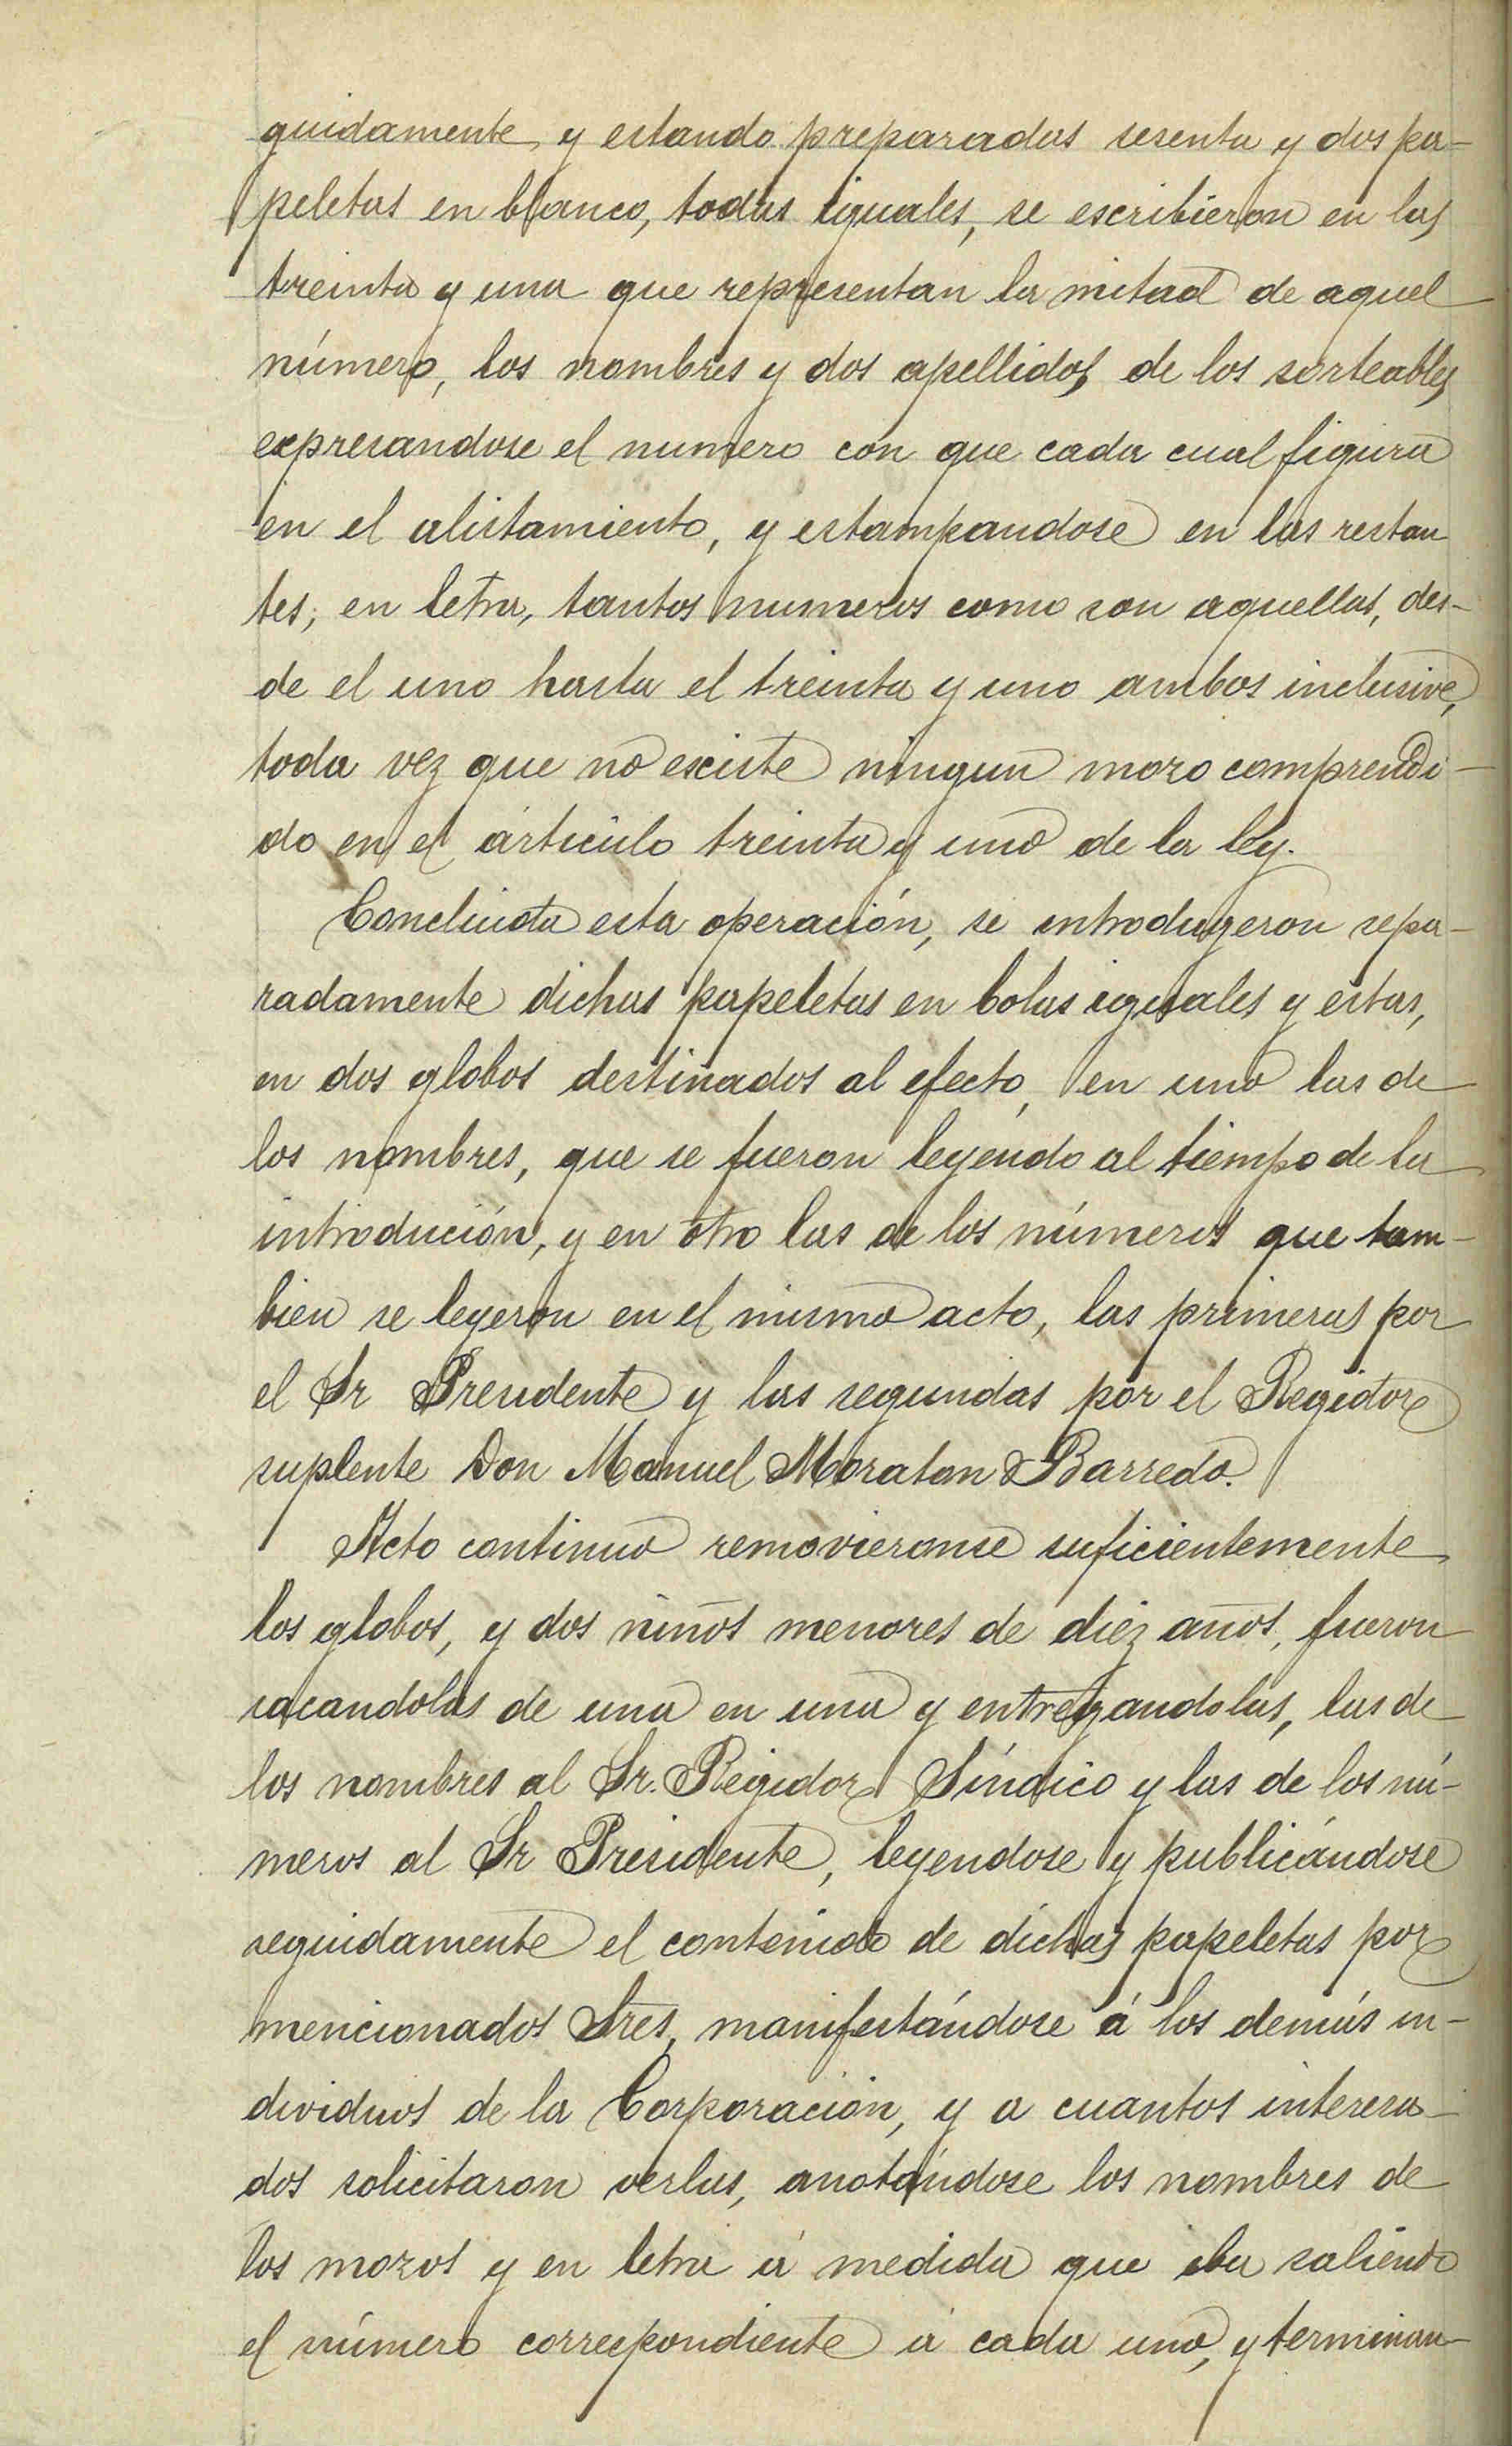 guidamente, y estando preparadas sesenta y dos pa-
peletas en blanco, todas iguales, se escribieron en las
treinta y una que representan la mitad de aquel
número, los nombres y dos apellidos de los sorteables
expresandose el numero con que cada cual figura
en el alistamiento, y estampandose en las restan
tes, en letra, tantos numeros como son aquellas, des-
de el uno hasta el treinta y uno ambos inclusive,
toda vez que no existe ningun mozo comprendi-
do en el artículo treinta y uno de la ley.
Concluida esta operación, se introdugeron sepa-
radamente dichas papeletas en bolas iguales y estas,
en dos globos destinados al efecto, en uno las de
los nombres, que se fueron leyendo al tiempo de la
introdución, y en otro las de los números que tam-
bien se leyeron en el mismo acto, las primeras por
el Sr Presidente y las segundas por el Regidor
suplente Don Manuel Moratan Barredo.
Acto continuo removieronse suficientemente
los globos, y dos niños menores de diez años, fueron
sacandolas de una en una y entregandolas, las de
los nombres al Sr. Regidor Síndico y las de los nú-
meros al Sr Presidente, leyendose y publicándose
seguidamente el contenido de dichas papeletas por
mencionados Sres, manifestándose á los demás in-
dividuos de la Corporación, y a cuantos interesa-
dos solicitaron verlas, anotándose los nombres de
los mozos y en letra á medida que iba saliendo
el número correspondiente á cada uno, y terminan-